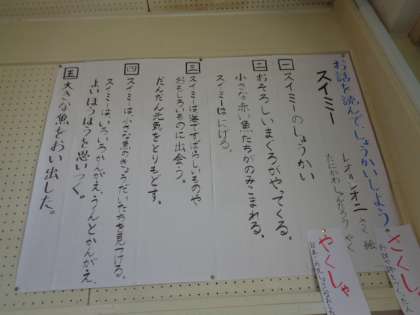 お話を読んで、しょうかいしよう。
スイミー
レオ=レオニ さく・絵
たにかわしゅんたろう やく
一
スイミーのしょうかい
二
おそろしいまぐろがやってくる。
小さな赤い魚たちがのみこまれる。
スイミーはにげる。
三
スイミーは海ですばらしいものや
おもしろいものに出会う。
だんだん元気をとりもどす。
四
スイミーは、小さな魚のきょうだいたちを見つける。
スイミーは、いろいろかんがえ、うんとかんがえ、
よいほうほうを思いつく。
五
大きな魚をおい出した。
さくしゃ
やくしゃ